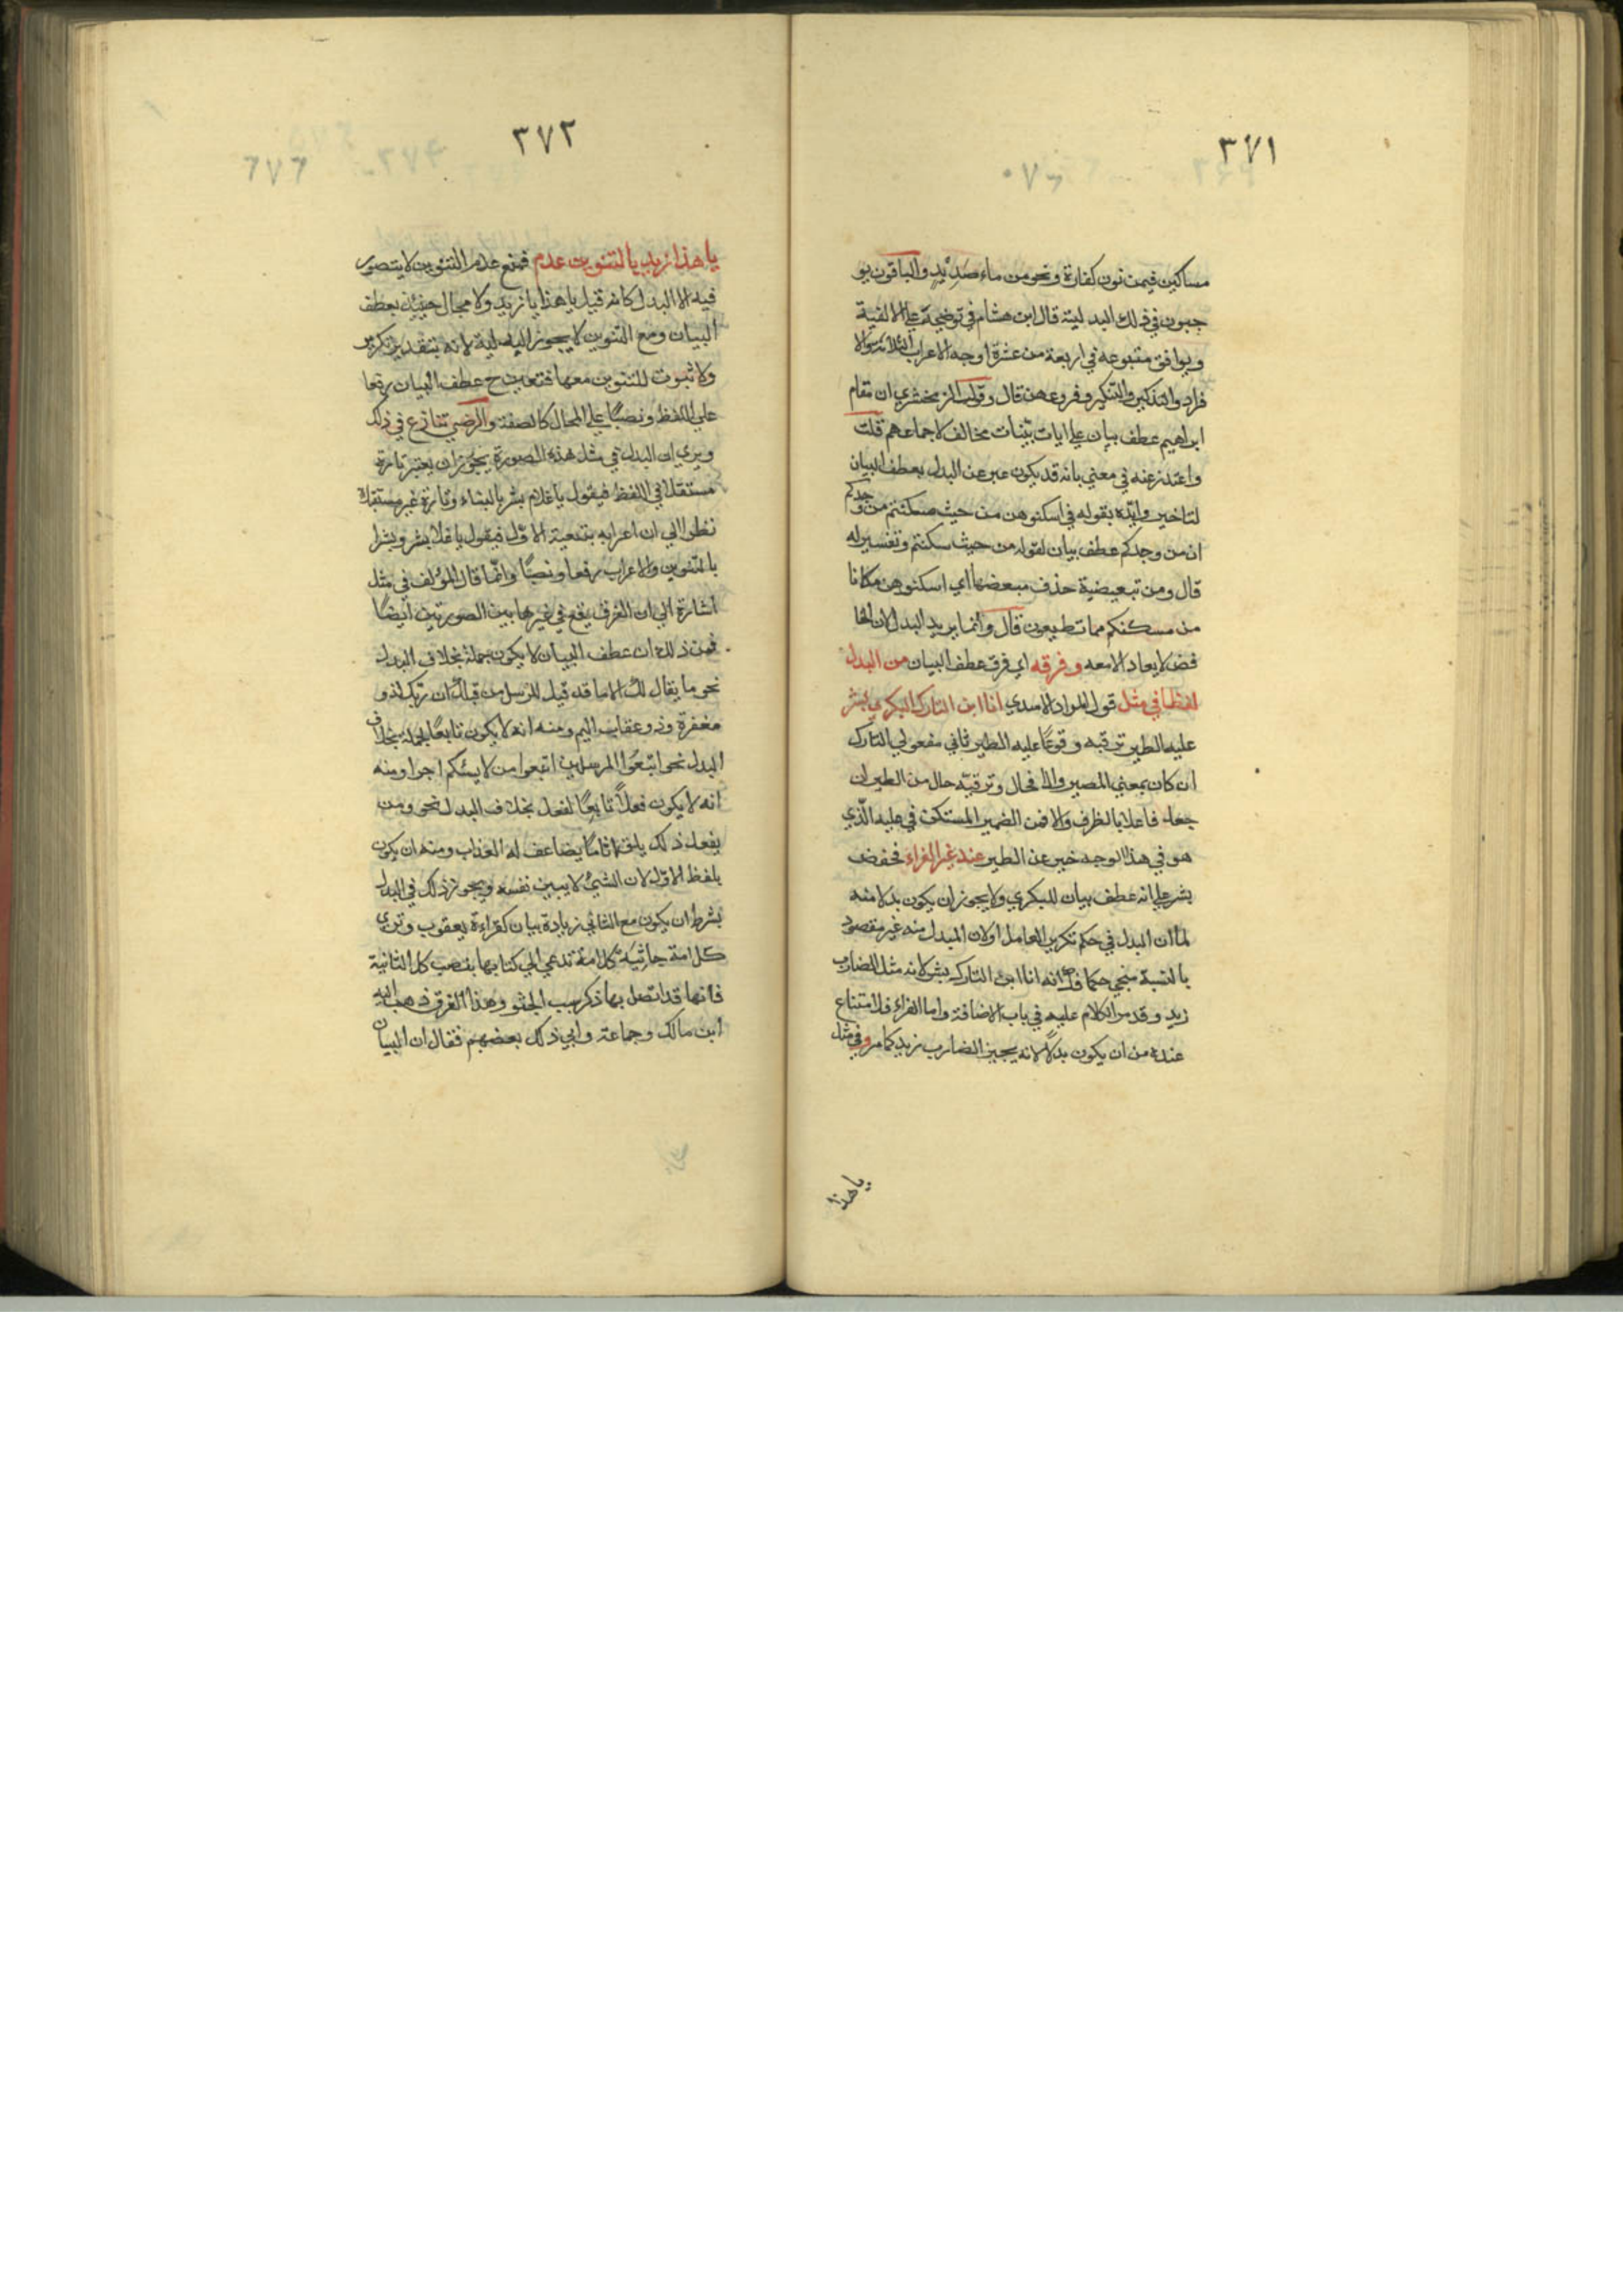 ٣٧١
مساكين فيمن نون كفارة ونحو من ماء صديد والباقون يو
جبون في ذلك البدلية قال ابن هشام في توضيحه على الالفية
ويوافق متبوعه في اربعة من عشرة اوجه الاعراب الثلاثة والا
فراد والتذكير والتنكير وفروعهن قال وقول الزمخشري ان مقام
ابراهيم عطف بيان على ايات بينات مخالف لاجماعهم قلت
واعتذر عنه في معني بانه قد يكون عبر عن البدل بعطف البيان
لتاخيهما وايده بقوله في اسكنوهن من حيث سكنتم من وجدكم
ان من وجدكم عطف بيان لقوله من حيث سكنتم وتفسير له
قال ومن تبعيضية حذف مبعضها اي اسكنوهن مكانا
من مسكنكم مما تطيعون قال وانما يريد البدل لان الخا
فض لا يعاد الا معه وفرقه اي فرق عطف البيان من البدل
لفظا في مثل قول المراد الاسدي انا ابن التارك البكري بشر
عليه الطير ترقبه وقوعا عليه الطير ثاني مفعولي التارك
ان كان بمعني المصير والا فحال وترقبه حال من الطير ان
جعل فاعلا بالظرف والا فمن الضمير المستكن في عليه الذي
هو في هذا الوجه خبر عن الطير عند غير الفراء فخفض
بشر على انه عطف بيان للبكري ولا يجوز ان يكون بدلا منه
لما ان البدل في حكم تكرير العامل اولان المبدل منه غير مقصود
بالنسبة منحي حكما انه انا ابن التارك بشر لانه مثل الضارب
زيد وقد مر الكلام عليه في باب الاضافة واما الفراء فلا امتناع
عنده من ان يكون بدلا لانه يجيز الضارب زيد كما مر وفي مثل
يا هذا
٣٧٢
يا هذا زيد بالتنوين عدم فمع عدم التنوين لا يتصور
فيه الا البدل كانه قيل يا هذا يا زيد ولا مجال حينئذ بعطف
البيان ومع التنوين لا يجوز البدلية لانه بتقدير تكرير
ولا ثبوت للتنوين معها فتعين ح عطف البيان رفعا
على اللفظ ونصبا على المحل كالصفة والرضي تنازع في ذلك
ويري ان البدل في مثل هذه الصورة يجوز ان يعتبر تارة
مستقلا في اللفظ فيقول يا غلام بشر بالبناء وتارة غير مستقل
نظرا الي ان اعرابه بتبعية الاول فيقول يا غلام بشر وبشرا
بالتنوين والاعراب رفعا ونصبا وانما قال المؤلف في مثل
اشارة الي ان الفرق يقع في غيرها بين الصورتين ايضا
فمن ذلك ان عطف البيان لا يكون جملة بخلاف البدل
نحو ما يقال لك الا ما قد قيل للرسل من قبلك ان ربك لذو
مغفرة وذو عقاب اليم ومنه انه لا يكون تابعا لجملة بخلاف
البدل نحو اتبعوا المرسلين اتبعوا من لا يسئلكم اجرا ومنه
انه لا يكون فعلا تابعا لفعل بخلاف البدل نحو ومن
يفعل ذلك يلق اثاما يضاعف له العذاب ومنه ان يكون
بلفظ الاول لان الشيء لا يبين نفسه ويجوز ذلك في البدل
بشرط ان يكون مع الثاني زيادة بيان كقراءة يعقوب وتري
كل امة جاثية كل امة تدعي الي كتابها بنصب كل الثانية
فانها قد اتصل بها ذكر سبب الجثو وهذا الفرق ذهب اليه
ابن مالك وجماعة وابي ذلك بعضهم فقال ان البيان